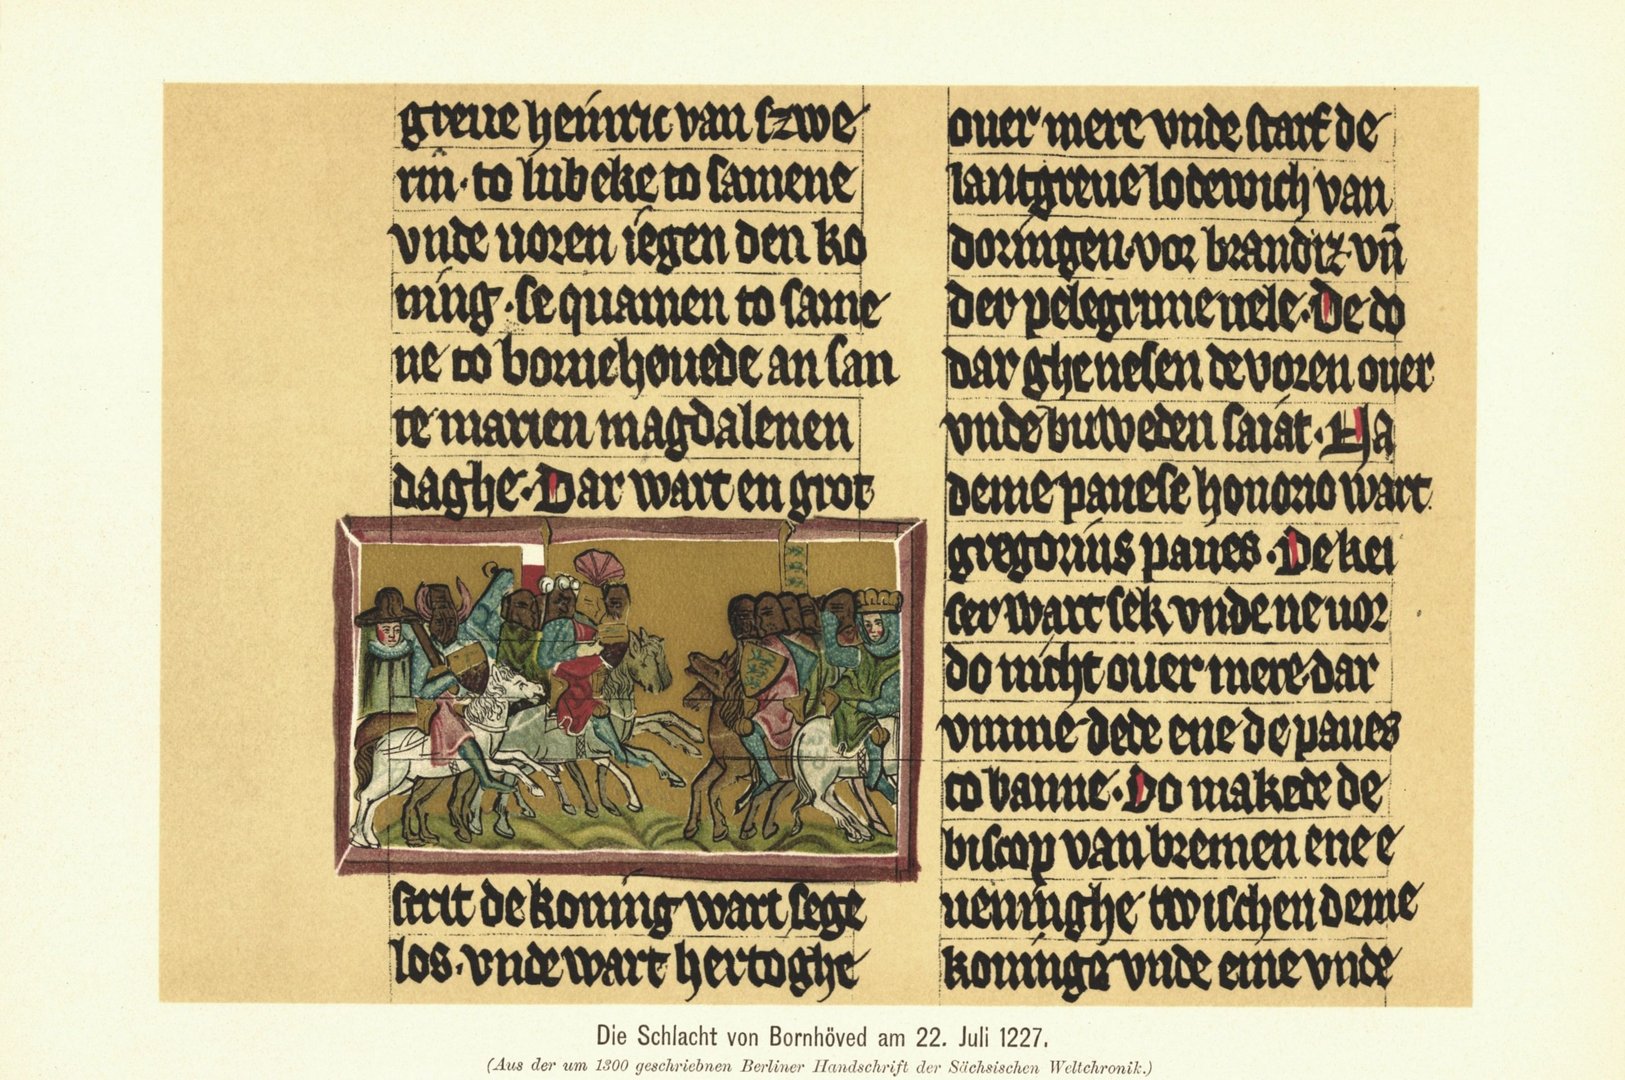 greue heinric van szwe
rin · to lubeke to samene
vnde uoren iegen den ko
ning · se quamen to same
ne to bornehouede an san
te marien magdalenen
daghe · Dar wart en grot
strit de koning wart sege
los · vnde wart hertoghe
ouer mere vnde starf de
lantgreue lodewich van
doringen · vor brandiz · vn̄
der pelegrime uele · De do
dar ghenesen de voren ouer
vnde buweden saiat · Na
deme pauese honorio wart
gregorius paues · De kei
ser wart sek vnde ne uor
do nicht ouer mere · dar
vmme dede ene de paues
to banne · Do makede de
biscop van bremen ene e
ueninghe twischen deme
koninge vnde eme vnde
Die Schlacht von Bornhöved am 22. Juli 1227.
(Aus der um 1300 geschriebnen Berliner Handschrift der Sächsischen Weltchronik.)